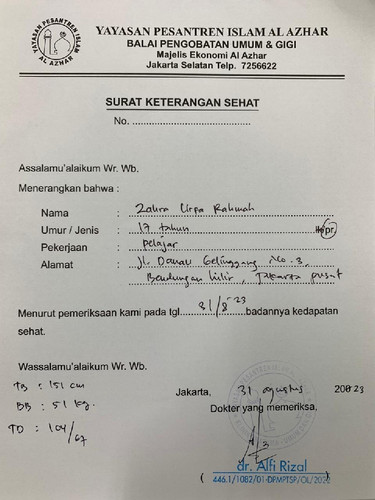 YAYASAN PESANTREN ISLAM AL AZHAR
YAYASAN PESANTREN ISLAM AL AZHAR
BALAI PENGOBATAN UMUM & GIGI
Majelis Ekonomi Al Azhar
Jakarta Selatan Telp. 7256622
SURAT KETERANGAN SEHAT
No. ........................................
Assalamu'alaikum Wr. Wb.
Menerangkan bahwa :
Nama : Zahra Urfa Rahmah
Umur / Jenis : 17 tahun pr.
Pekerjaan : pelajar
Alamat : Jl. Danau Gelinggang No. 3,
Bendungan hilir, Jakarta pusat
Menurut pemeriksaan kami pada tgl. 31/8-23 badannya kedapatan
sehat.
Wassalamu'alaikum Wr. Wb.
TB : 151 cm
BB : 51 kg.
TD : 104/67
Jakarta, 31 agustus 20023
Dokter yang memeriksa,
dr. Alfi Rizal
( 446.1/1082/01-DPMPTSP/OL/2022